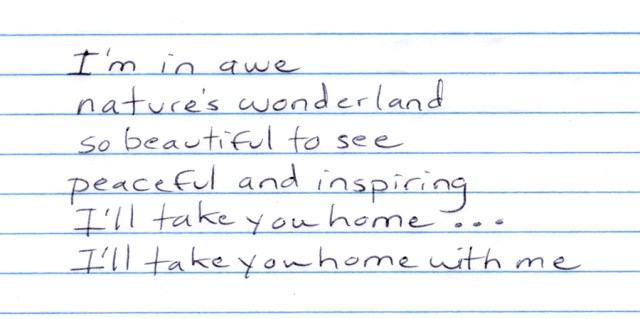 I'm in awe
nature's wonderland
so beautiful to see
peaceful and inspiring
I'll take you home...
I'll take you home with me